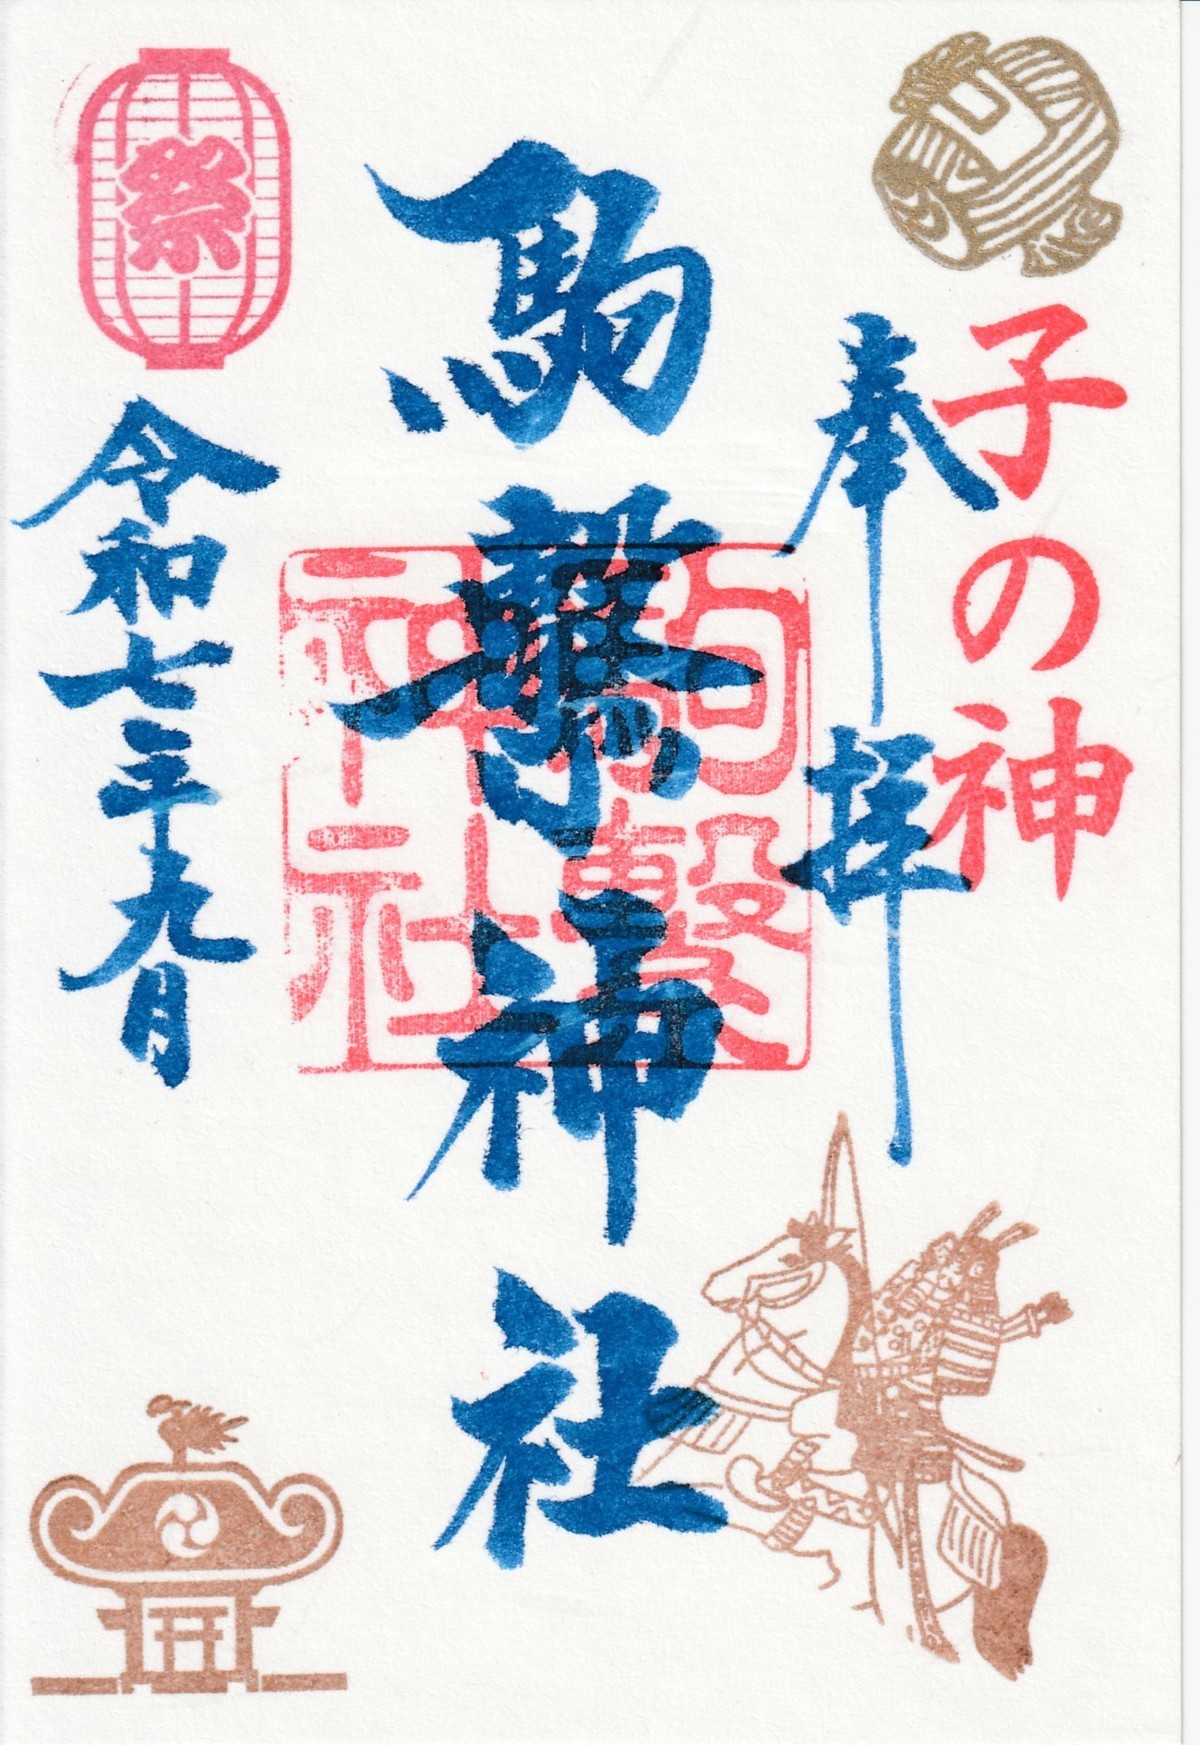 子の神
奉拝
駒繋神社
駒繋
神社
祭
令和七年九月